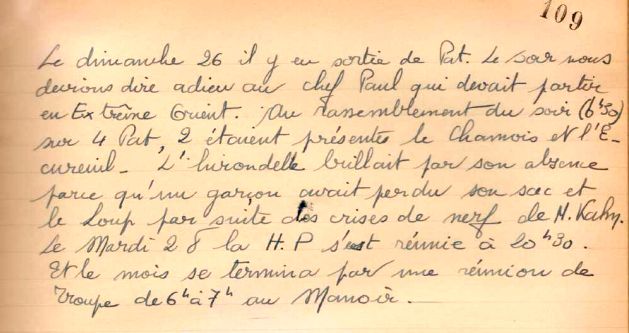 109
Le dimanche 26 il y eu sortie de Pat. Le soir nous
devrions dire adieu au chef Paul qui devait partir
en Extrême Orient. Au rassemblement du soir (6h30)
sur 4 Pat, 2 étaient présentes le Chamois et l'É-
cureuil - L'hirondelle brillait par son absence
parce qu'un garçon avait perdu son sac et
le Loup par suite des crises de nerf de H. Kahn.
Le Mardi 28 la H.P s'est réunie à 20h30.
Et le mois se termina par une réunion de
Troupe de 6h à 7h au Manoir.-